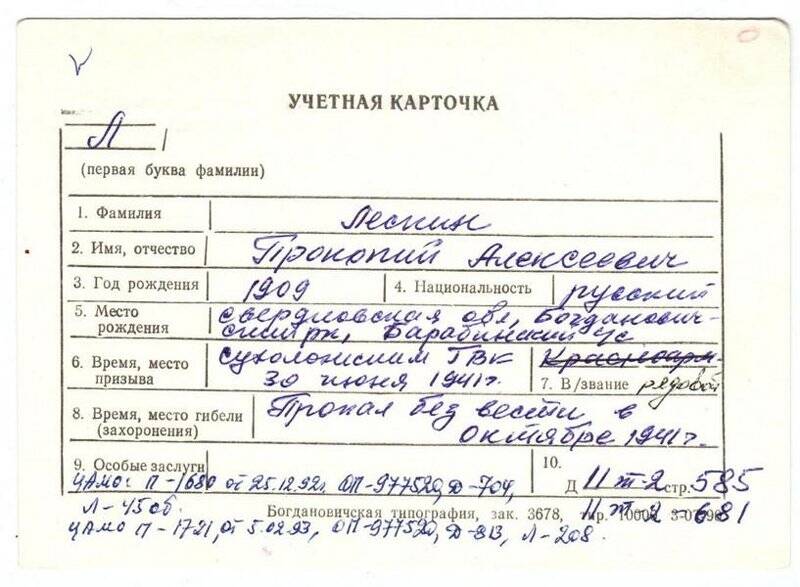 УЧЕТНАЯ КАРТОЧКА
Л
(первая буква фамилии)
1. Фамилия Лескин
2. Имя, отчество Прокопий Алексеевич
3. Год рождения 1909 4. Национальность русский
5. Место рождения Свердловская обл, Богданович-
ский рн, Барабинский с/с
6. Время, место призыва Сухоложским ГВК Красноарм-
30 июня 1941г. 7. В/звание рядовой
8. Время, место гибели (захоронения) Пропал без вести в
октябре 1941г.
9. Особые заслуги 10.
ЦАМО: П-1680 от 25.12.92г. ОП-977520, Д-704, Д II т-2 стр. 585
Л-45об. Богдановичская типография, зак. 3678, тир. 10000 II т 2 - 681
ЦАМО П-1721, от 5.02.93, ОП-977520, Д-813, Л-208.